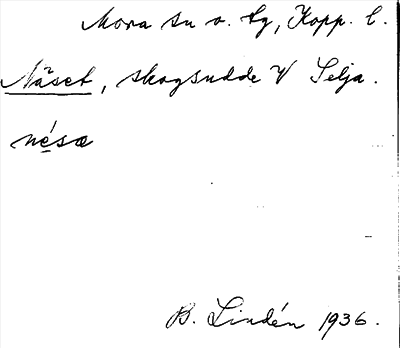 Mora sn o. tg, Kopp. l.
Näset, skogsudde V Selja.
nésæ
B. Lindén 1936.